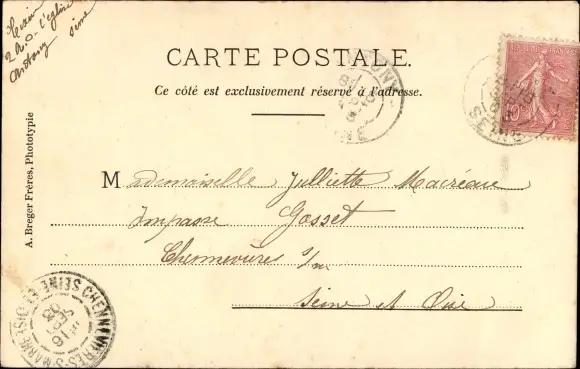 2 R. de l'Eglise
Antony Seine
CARTE POSTALE.
Ce côté est exclusivement réservé à l'adresse.
Mademoiselle Julliette Macréau
Impasse Gosset
Chennevières s/m
Seine et Oise
A. Breger Frères, Phototypie
RÉPUBLIQUE FRANÇAISE
10
SEINE
CHENNEVIÈRES-S-MARNE
SEINE-ET-OISE